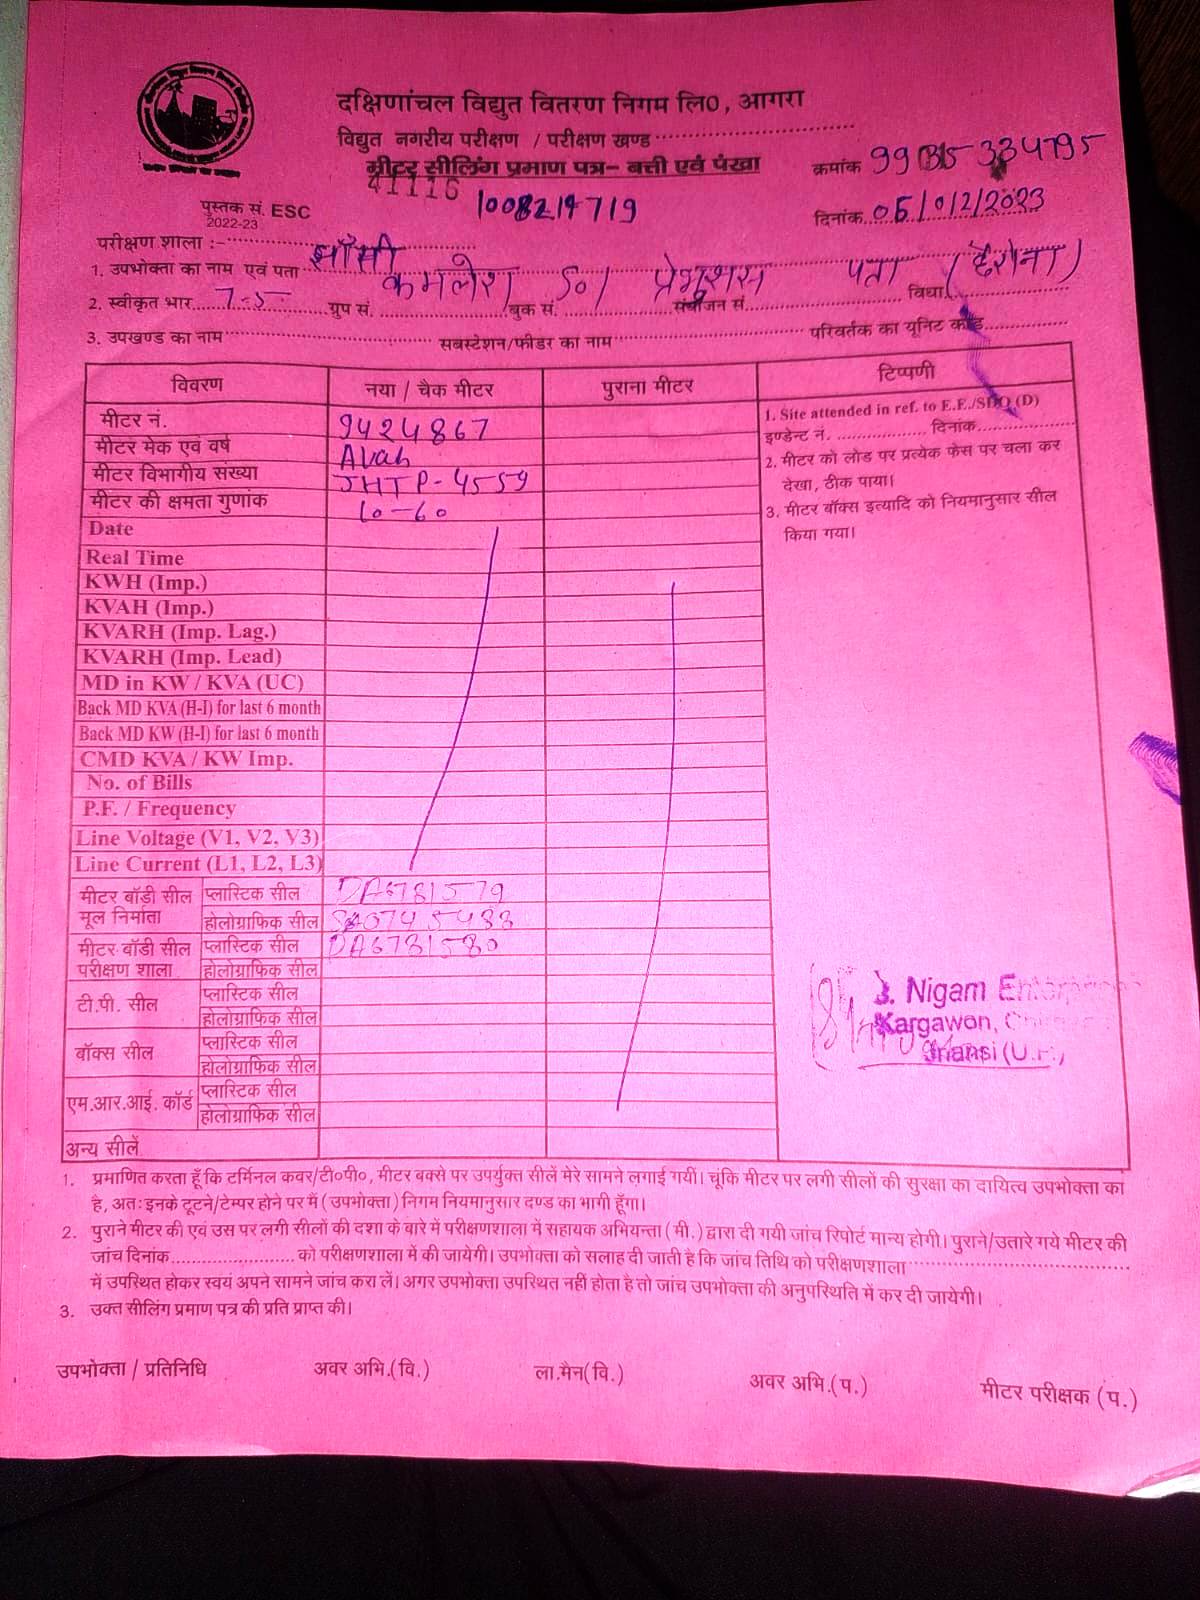 दक्षिणांचल विद्युत वितरण निगम लि0, आगरा
विद्युत नगरीय परीक्षण / परीक्षण खण्ड
मीटर सीलिंग प्रमाण पत्र- बत्ती एवं पंखा
क्रमांक
41116
पुस्तक सं. ESC
2022-23
दिनांक 05/02/2023
परीक्षण शाला :- झाँसी
1. उपभोक्ता का नाम एवं पता कमलेश S०/
2. स्वीकृत भार 7.5 ग्रुप सं. बुक सं. संयोजन सं. विधा
3. उपखण्ड का नाम सबस्टेशन/फीडर का नाम परिवर्तक का यूनिट कोड
विवरण नया / चैक मीटर पुराना मीटर टिप्पणी
मीटर नं. 9424867
मीटर मेक एवं वर्ष Avah
मीटर विभागीय संख्या JHTP-4559
मीटर की क्षमता गुणांक 10-60
1. Site attended in ref. to E.E./SDO (D)
इण्डेन्ट नं. दिनांक
2. मीटर को लोड पर प्रत्येक फेस पर चला कर
देखा, ठीक पाया।
3. मीटर बॉक्स इत्यादि को नियमानुसार सील
किया गया।
Date
Real Time
KWH (Imp.)
KVAH (Imp.)
KVARH (Imp. Lag.)
KVARH (Imp. Lead)
MD in KW / KVA (UC)
Back MD KVA (H-I) for last 6 month
Back MD KW (H-I) for last 6 month
CMD KVA / KW Imp.
No. of Bills
P.F. / Frequency
Line Voltage (V1, V2, V3)
Line Current (L1, L2, L3)
मीटर बॉडी सील
मूल निर्माता
प्लास्टिक सील DA6781579
होलोग्राफिक सील
मीटर बॉडी सील
परीक्षण शाला
प्लास्टिक सील DA6781580
होलोग्राफिक सील
टी.पी. सील
प्लास्टिक सील
होलोग्राफिक सील
बॉक्स सील
प्लास्टिक सील
होलोग्राफिक सील
एम.आर.आई. कॉर्ड
प्लास्टिक सील
होलोग्राफिक सील
अन्य सीलें
Nigam
Kargawon,
Jhansi (U.P.)
1. प्रमाणित करता हूँ कि टर्मिनल कवर/टी०पी०, मीटर बक्से पर उपर्युक्त सीलें मेरे सामने लगाई गयीं। चूंकि मीटर पर लगी सीलों की सुरक्षा का दायित्व उपभोक्ता का
है, अतः इनके टूटने/टेम्पर होने पर में (उपभोक्ता) निगम नियमानुसार दण्ड का भागी हूँगा।
2. पुराने मीटर की एवं उस पर लगी सीलों की दशा के बारे में परीक्षणशाला में सहायक अभियन्ता (मी.) द्वारा दी गयी जांच रिपोर्ट मान्य होगी। पुराने/उतारे गये मीटर की
जांच दिनांक को परीक्षणशाला में की जायेगी। उपभोक्ता को सलाह दी जाती है कि जांच तिथि को परीक्षणशाला
में उपस्थित होकर स्वयं अपने सामने जांच करा लें। अगर उपभोक्ता उपस्थित नहीं होता है तो जांच उपभोक्ता की अनुपस्थिति में कर दी जायेगी।
3. उक्त सीलिंग प्रमाण पत्र की प्रति प्राप्त की।
उपभोक्ता / प्रतिनिधि अवर अभि.(वि.) ला.मैन(वि.) अवर अभि.(प.) मीटर परीक्षक (प.)